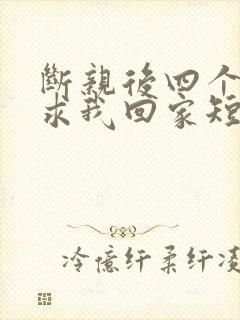 斷親後四个
求我回家短
冷億纤柔纤凌